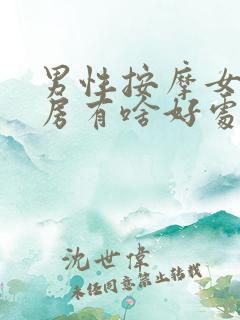 男性按摩女
房有啥好處
沈世偉
未经同意禁止转载